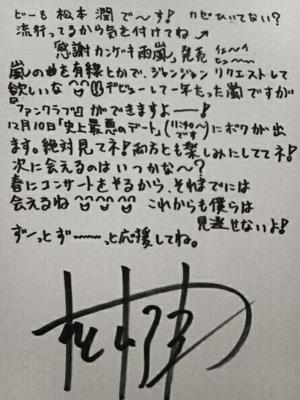 どーも松本潤で〜す! カゼひいてない?
流行ってるから気を付けてね
「感謝カンゲキ雨嵐」発売 イェ〜イ ヒュ〜
嵐の曲を有線とかで、ジャンジャンリクエストして
欲しいな デビューして一年たった嵐ですが
『ファンクラブ』ができますよー!
12月10日「史上最悪のデート」(です)にボクが出
ます。絶対見てネ!両方とも楽しみにしててネ!
次に会えるのはいつかな〜?
春にコンサートをやるから、それまでには
会えるね これからも僕らは
見逃せないよ!
ずーっとず〜〜っと応援してね。